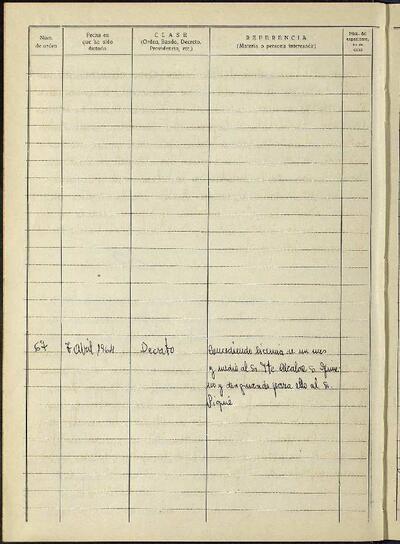 Núm. de orden
Fecha en que ha sido dictada
CLASE
(Orden, Bando, Decreto, Providencia, etc.)
REFERENCIA
(Materia o persona interesada)
Núm. del expediente, en su caso
67 7 Abril 1964 Decreto Concediendo licencia de un mes
y medio al Sr. Tte. Alcalde Sr.
y designando para ello al Sr.
Piqué